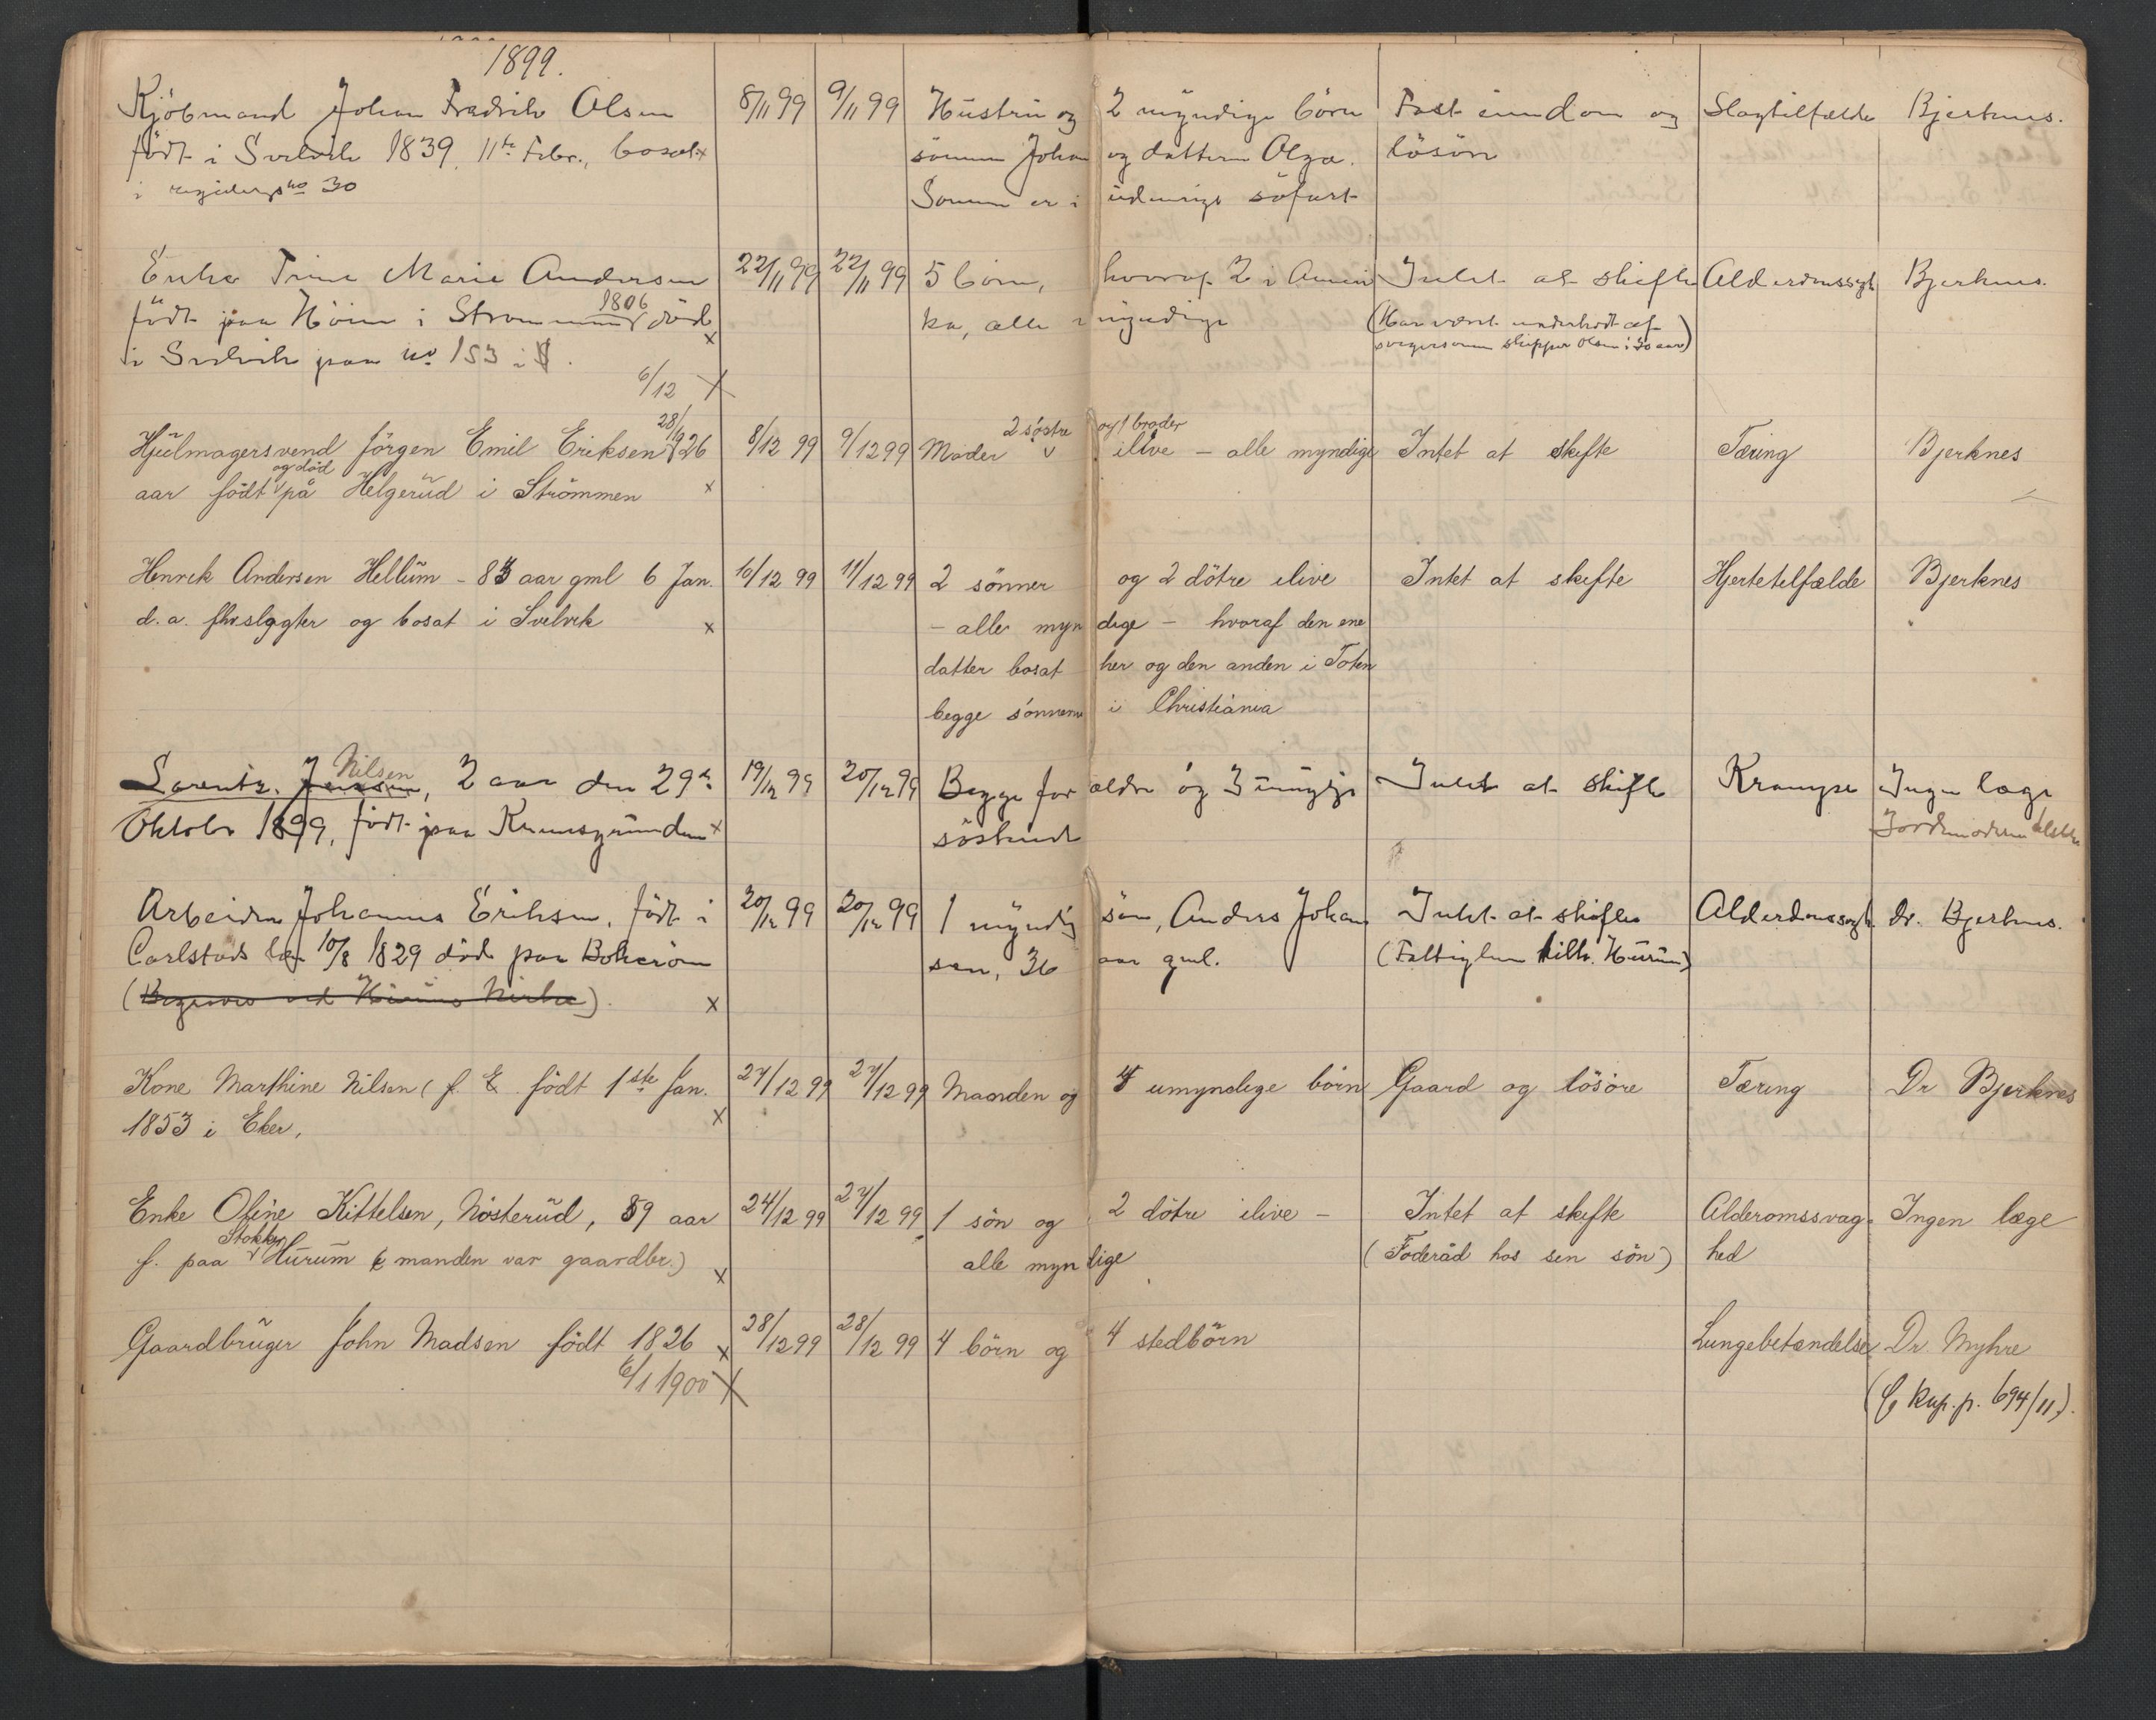 1899.
Kjöbmand Johan Fredrik Olsen 8/11 99 9/11 99 Hustru og 2 myndige börn Fast eiendom og Slagtilfælde Bjerknes.
født i Svelvik 1839. 11te Febr., bosat x sönnen Johan og datteren Olga. lösöre
i no 30 Sönnen er i udenrigs söfart
Enke Trine Marie Andersen 22/11 99 22/11 99 5 börn, hvoraf 2 i Ameri Intet at skifte Alderdomssvagh Bjerknes.
född paa Höien i Strömmen 1806 död x ka, alle myndige (Har været underholdt af
i Svelvik paa no 153 i S. svigersönnen skipper Olsen i 30 aar)
6/12 X
28/9
Hjulmagersvend Jörgen Emil Eriksen 26 8/12 99 9/12 99 Moder 2 søstre og 1 broder ilive – alle myndige Intet at skifte Tæring Bjerknes
aar født og död på Helgerud i Strömmen x
Henrik Andersen Hellum – 83 aar gml 6 Jan. 10/12 99 11/12 99 2 sönner og 2 dötre ilive Intet at skifte Hjertetilfælde Bjerknes
d. a. fhv slagter og bosat i Svelvik x – alle myndige – hvoraf den ene
datter bosat her og den anden i Toten
begge sönnene i Christiania
Nilsen
Lorentz Jensen, 2 aar den 29de 19/12 99 20/12 99 Begge forældre og 3 umyndige Intet at skifte Krampe Ingen læge
Oktober 1899, født paa x söskende Jordmoderen
Arbeider Johannes Eriksen, født i 20/12 99 20/12 99 1 myndig sön, Anders Johan Intet at skifte Alderdomssvagh dr. Bjerknes.
Carlstads len 10/8 1829 död paa Bokeröen sen, 36 aar gml. (Fattiglem tilh. Hurum)
(Begraves ved Hurums Kirke). x
Kone Marthine Nilsen (f. E. født 1ste Jan. 27/12 99 27/12 99 Manden og 4 umyndige börn Gaard og lösöre Tæring Dr Bjerknes
1853 i Eker, x
Enke Oline Kittelsen, Nösterud, 89 aar 24/12 99 27/12 99 1 sön og 2 dötre ilive – Intet at skifte Alderomssvag- Ingen læge
f. paa Stokker Hurum (manden var gaardbr.) x alle myndige (Foderåd hos sen sön) hed
Gaardbruger John Madsen født 1826 x 28/12 99 28/12 99 4 börn og 4 stedbörn Lungebetændelse Dr. Myhre
6/1 1900 X (Cf kop. p. 694/11).